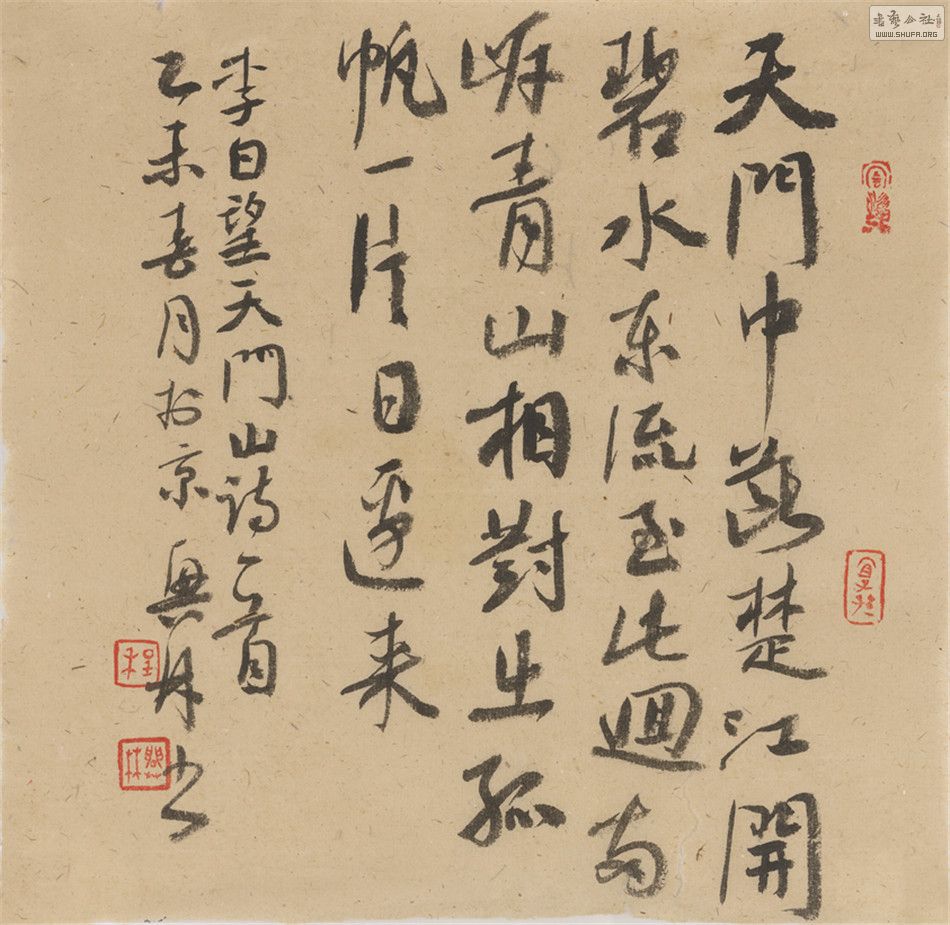 天門中斷楚江開
碧水東流至此迴兩
岸青山相對出孤
帆一片日邊来
李白望天門山詩一首
乙未春月於京 興林书
程
興林
書藝公社
WWW.SHUFA.ORG